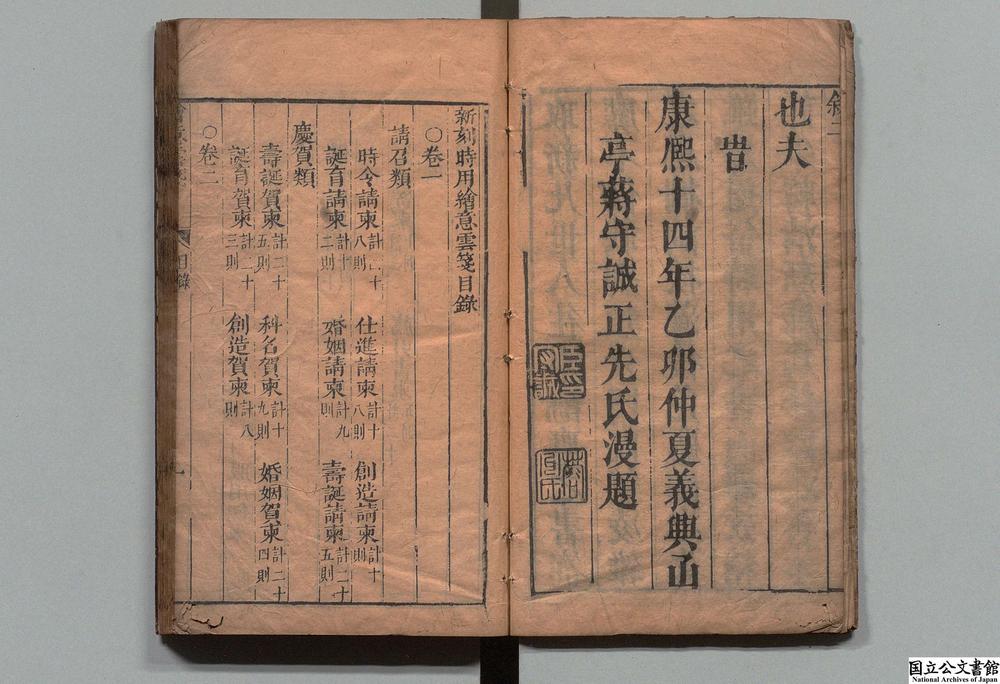 叙二
也夫
旹
康熙十四年乙卯仲夏義興函
亭蔣守誠正先氏漫題
新刻時用繪意雲箋目錄
○卷一
請召類
時令請柬計二十八則 仕進請柬計十八則 創造請柬計十則
誕育請柬計十二則 婚姻請柬計九則 壽誕請柬計二十五則
慶賀類
壽誕賀柬計二十五則 科名賀柬計十九則 婚姻賀柬計二十四則
誕育賀柬計二十三則 創造賀柬計八則
○卷二
目錄
国立公文書館
National Archives of Japan